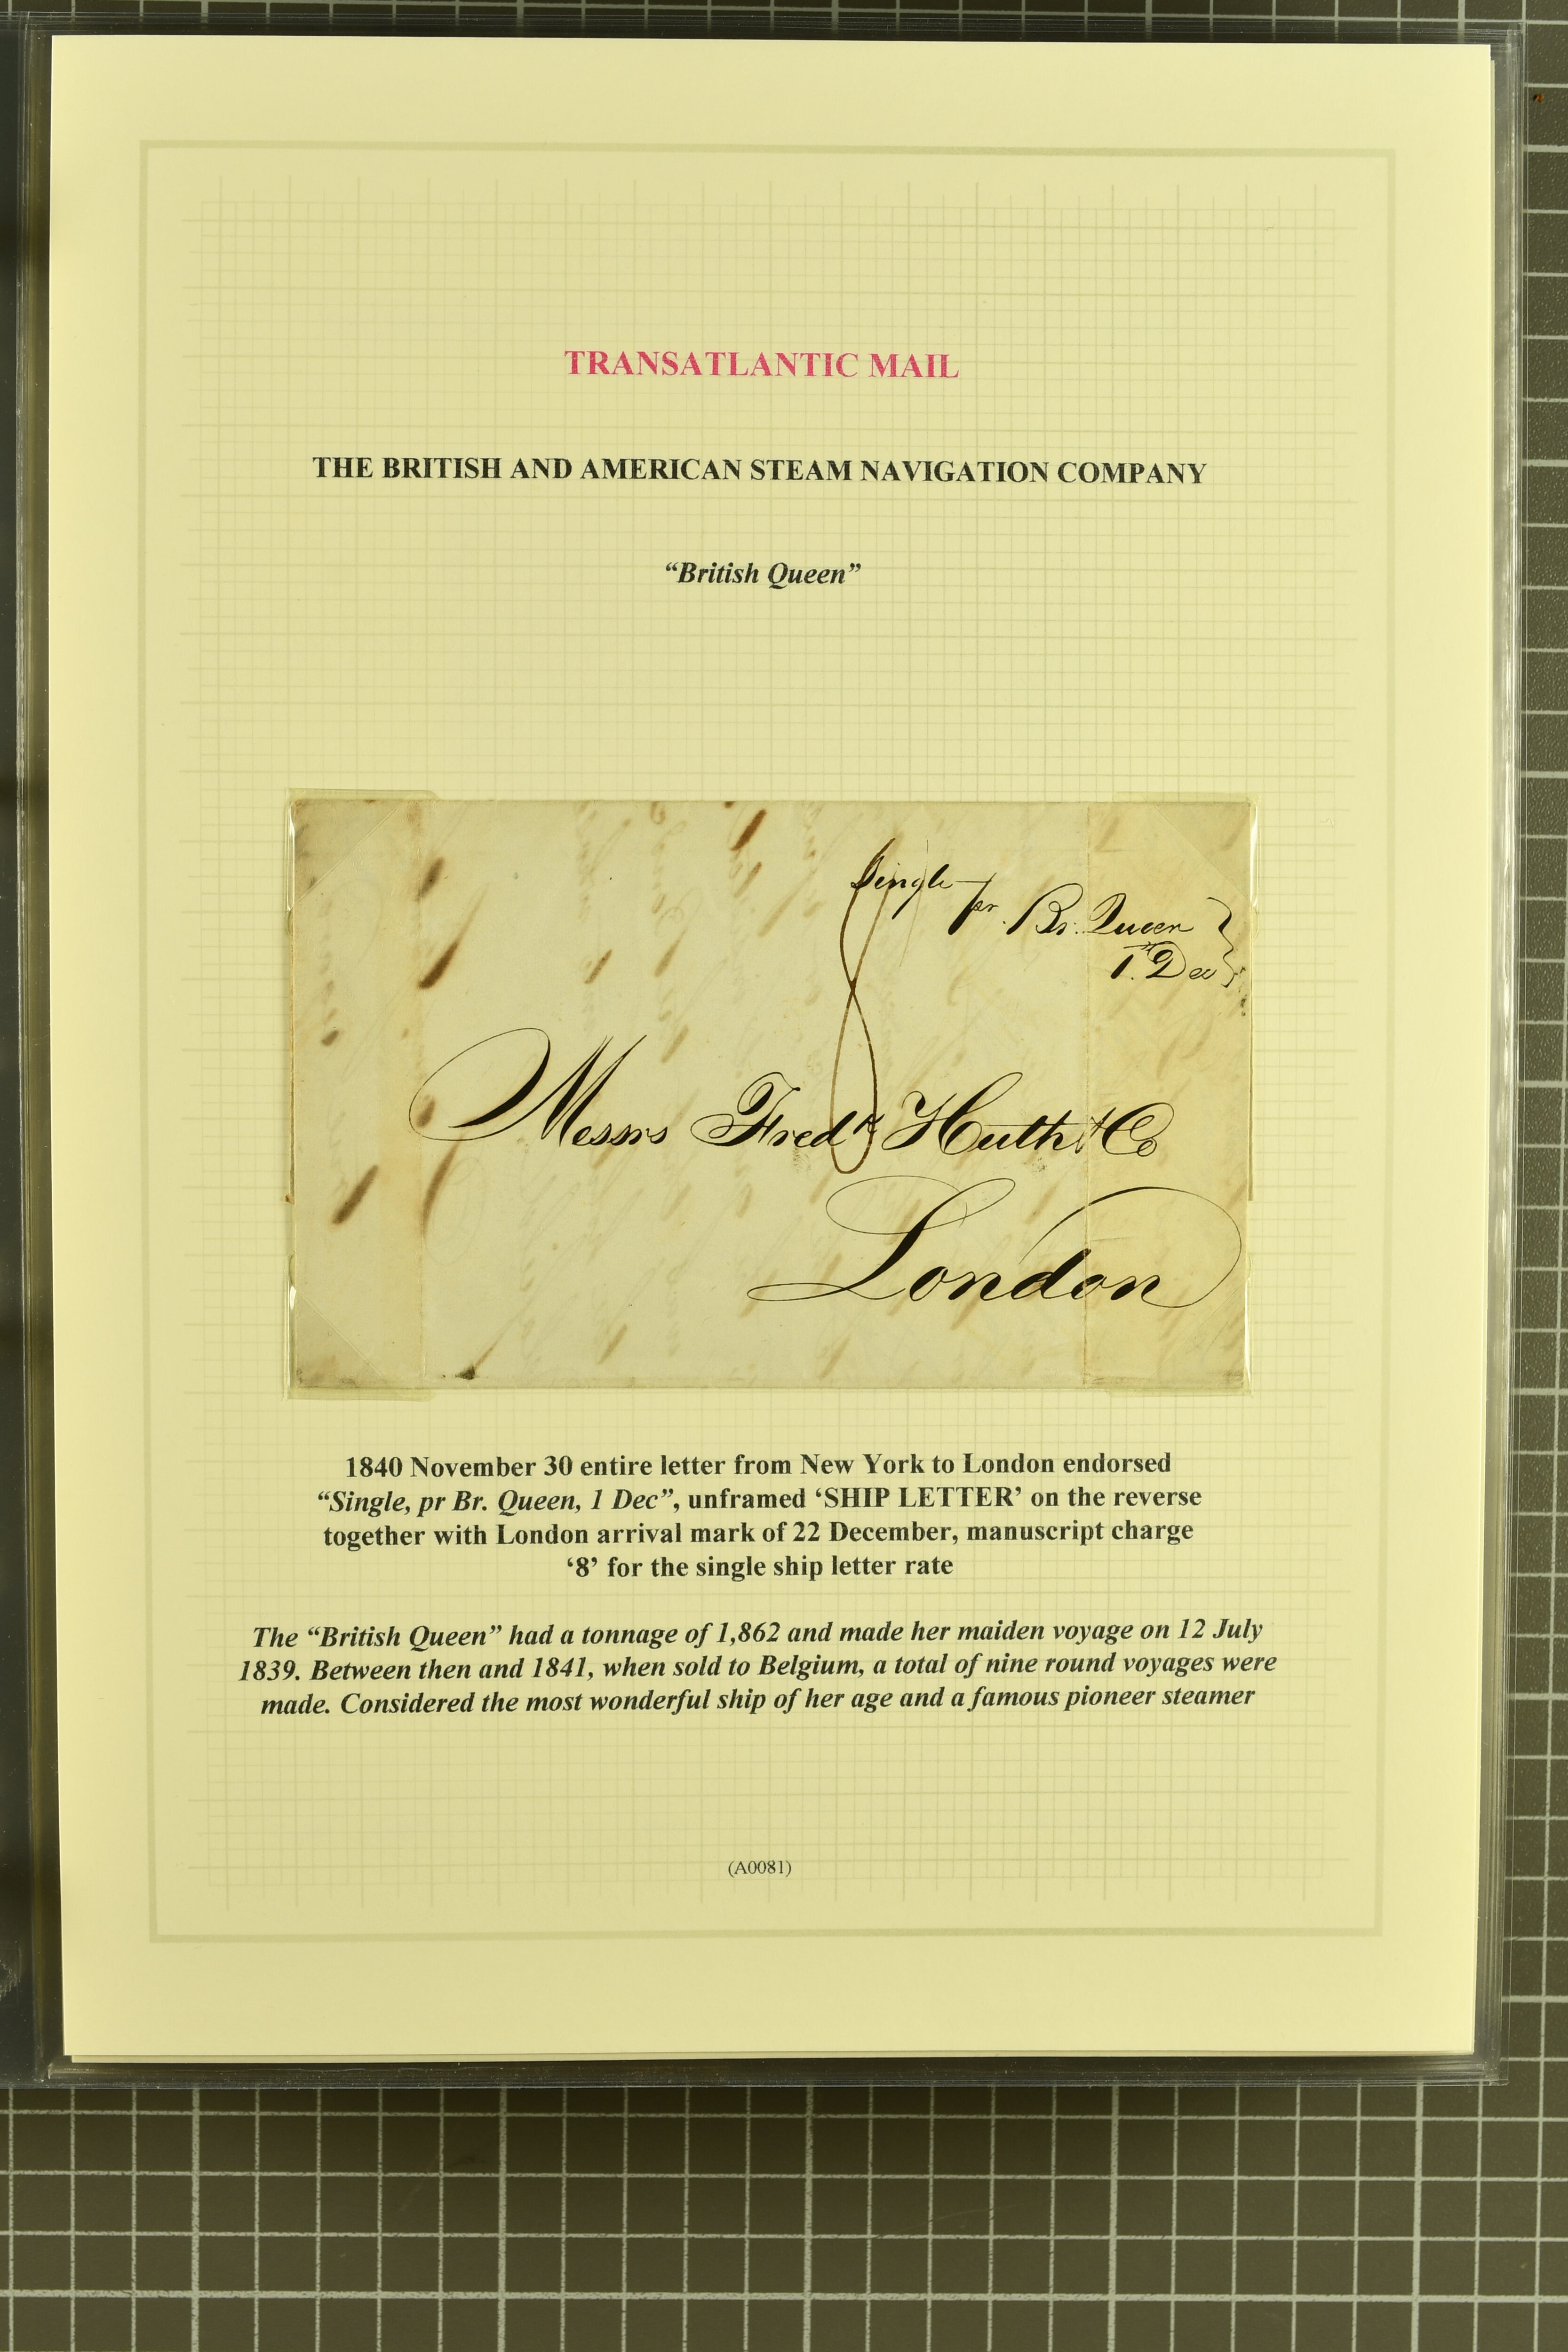 TRANSATLANTIC MAIL
THE BRITISH AND AMERICAN STEAM NAVIGATION COMPANY
“British Queen”
Single
pr. Br. Queen
1st Dec
8
Messrs Fredk Huth & Co
London
1840 November 30 entire letter from New York to London endorsed
“Single, pr Br. Queen, 1 Dec”, unframed ‘SHIP LETTER’ on the reverse
together with London arrival mark of 22 December, manuscript charge
‘8’ for the single ship letter rate
The “British Queen” had a tonnage of 1,862 and made her maiden voyage on 12 July
1839. Between then and 1841, when sold to Belgium, a total of nine round voyages were
made. Considered the most wonderful ship of her age and a famous pioneer steamer
(A0081)